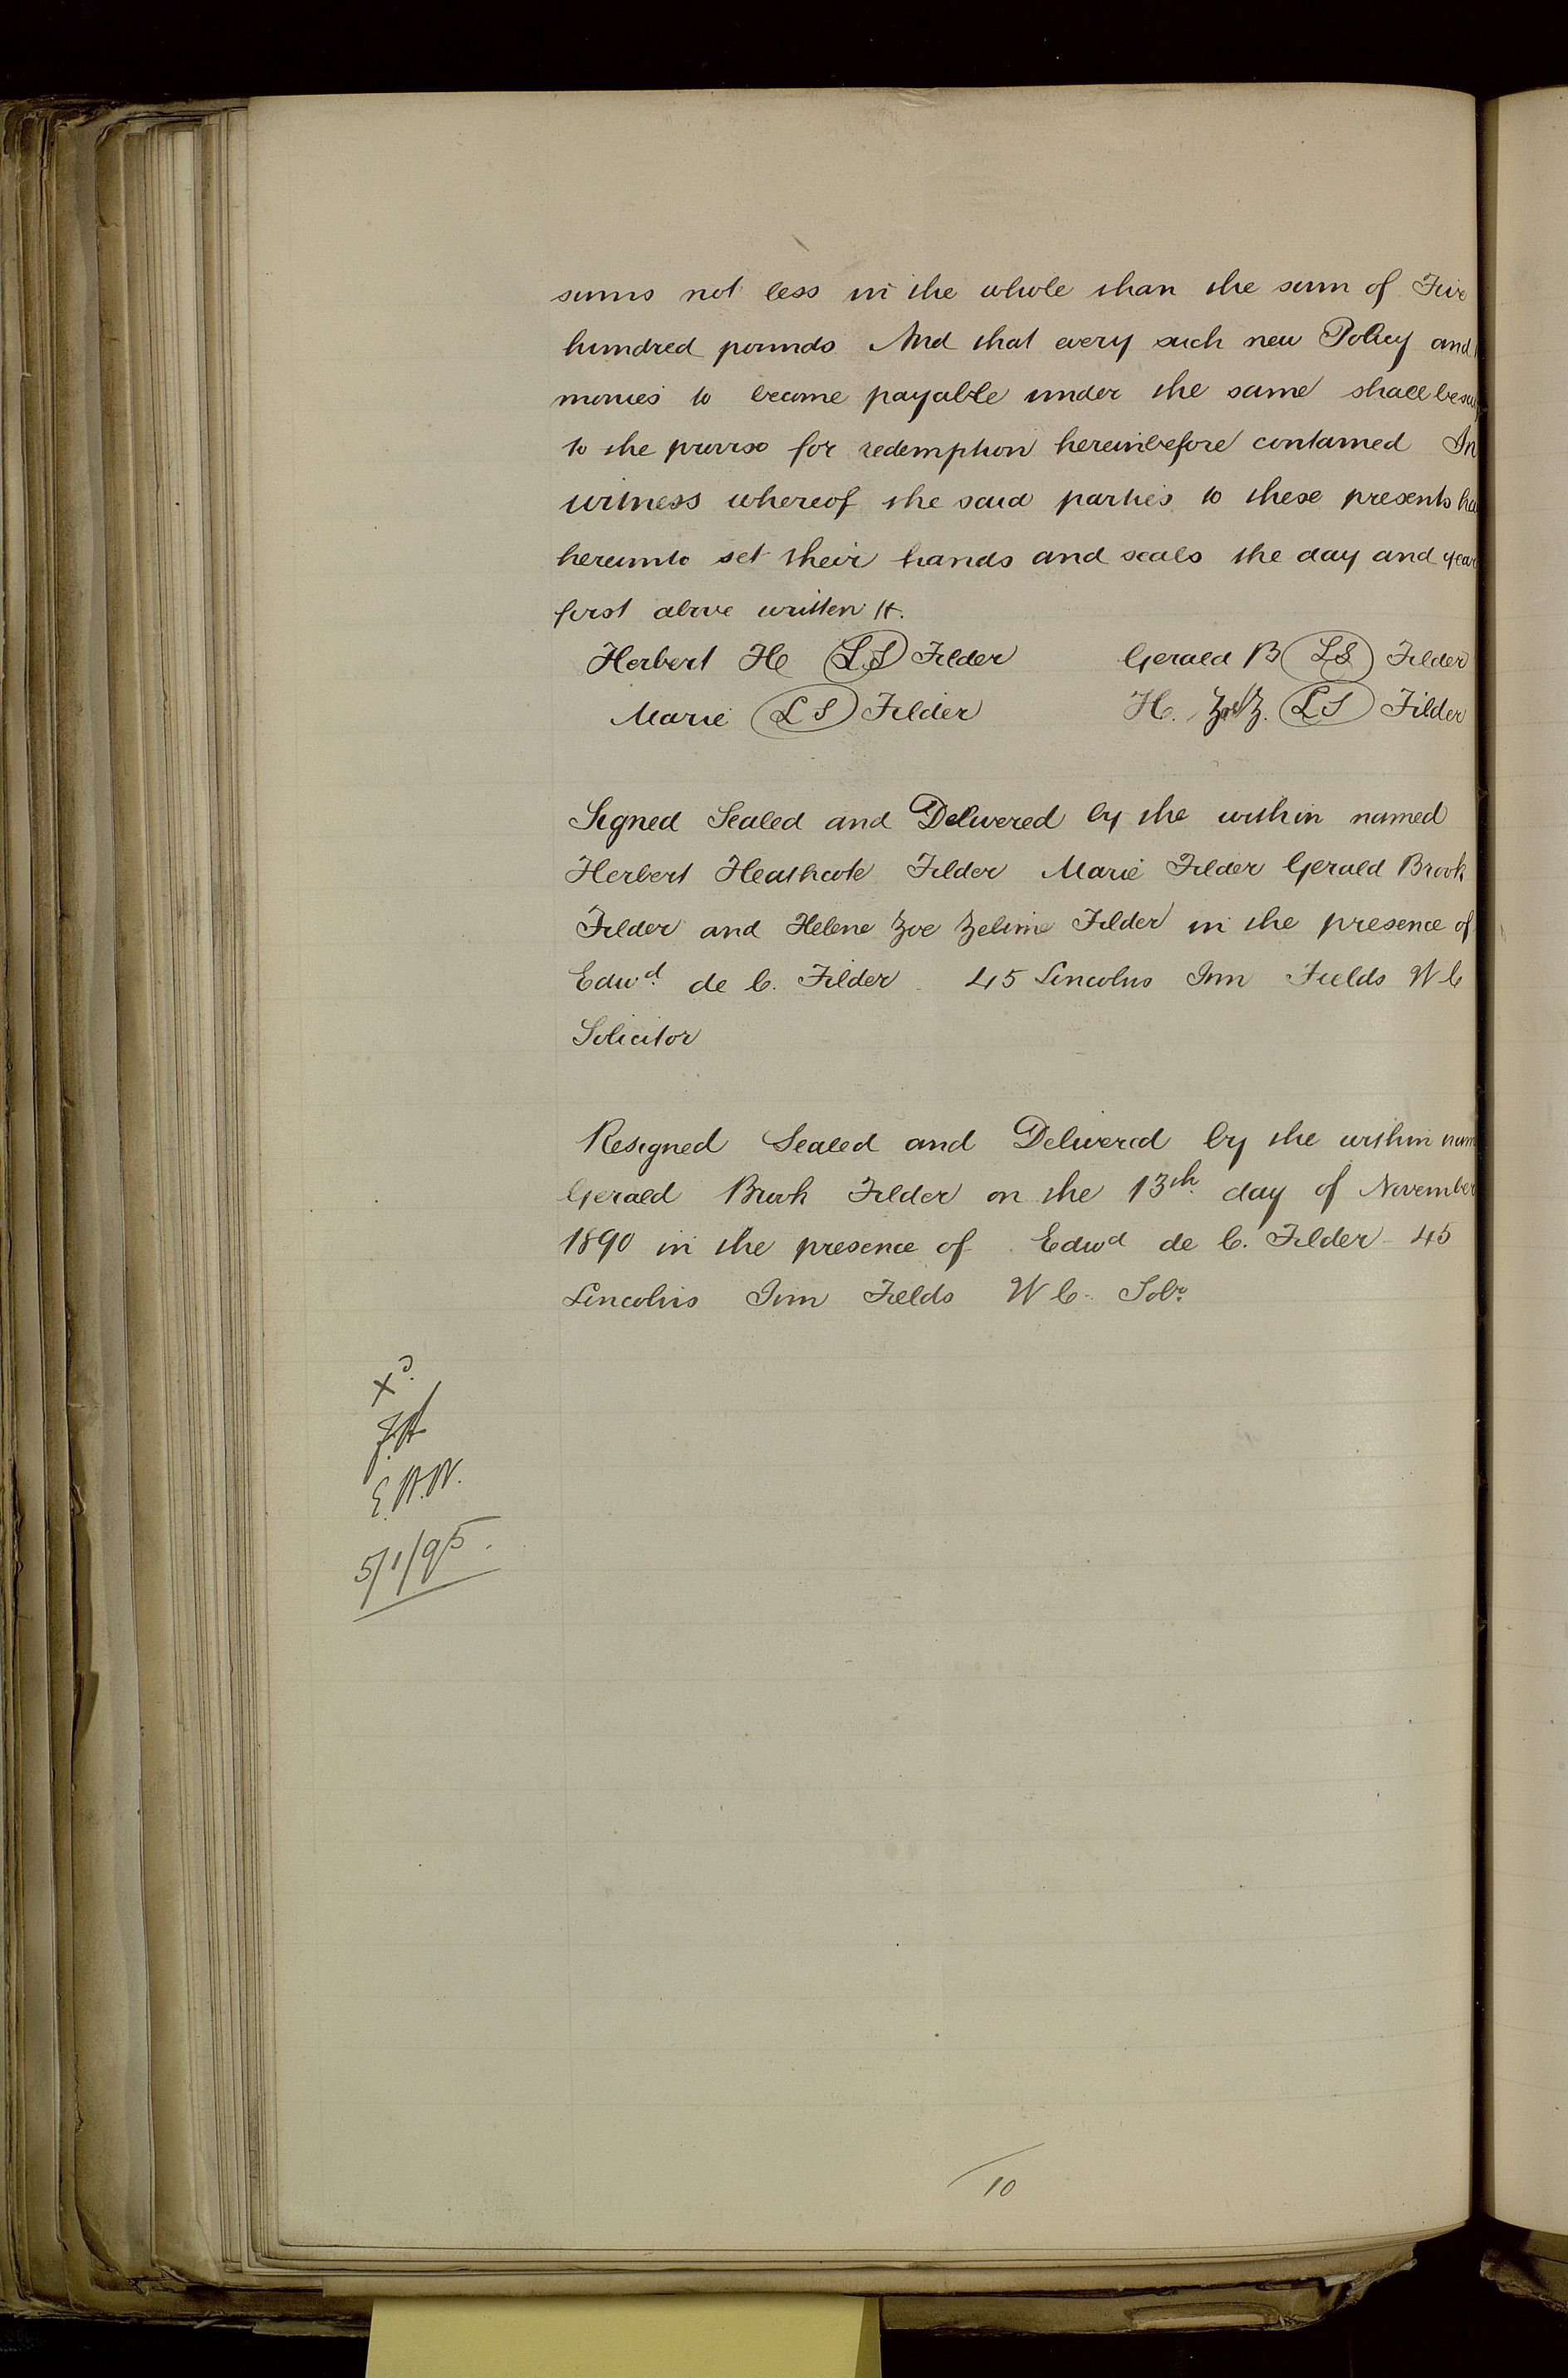 sums not less in the whole than the sum of Five
hundred pounds And that every such new Policy and
monies to become payable under the same shall be su
to the proviso for redemption hereinbefore contained In
witness whereof the said parties to these presents ha
hereunto set their hands and seals the day and year
first above written
Herbert H LS Filder Gerald B LS Filder
Marie LS Filder H. Zoe Z. LS Filder
Signed Sealed and Delivered by the within named
Herbert Heathcote Filder Marie Filder Gerald Brook
Filder and Helene Zoe Zelime Filder in the presence of
Edwd. de C. Filder 45 Lincolns Inn Fields W C
Solicitor
Resigned Sealed and Delivered by the within nam
Gerald Brook Filder on the 13th. day of November
1890 in the presence of Edwd de C. Filder - 45
Lincolns Inn Fields W C. Solr.
Xd.
E.W.W.
5/1/95.
10